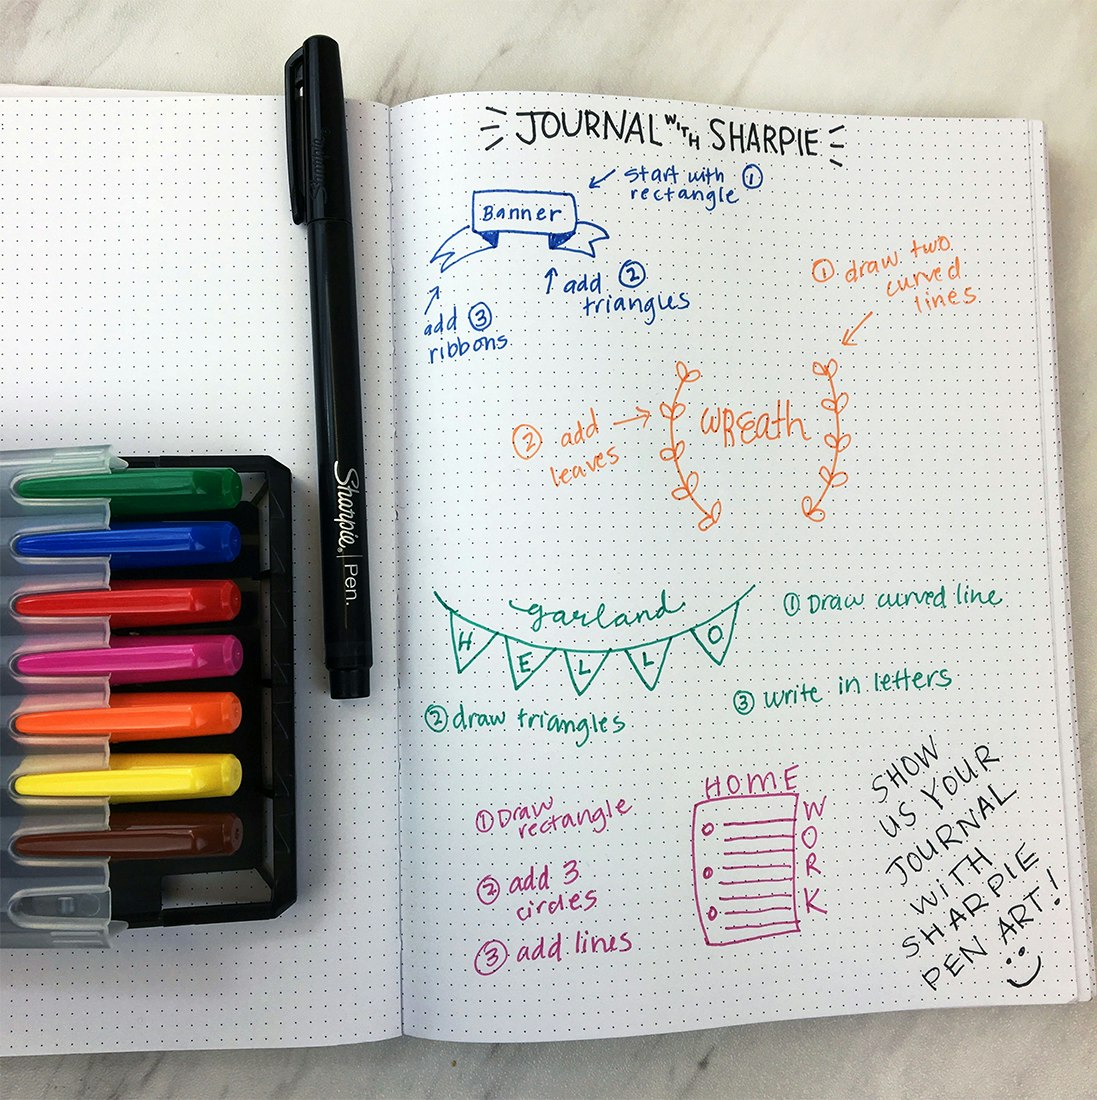 JOURNAL WITH SHARPIE
start with ①
rectangle
Banner
↑ add ②
triangles
add ③
ribbons
① draw two
curved
lines
② add
leaves
WREath
garland
HELLO
① Draw curved line
② draw triangles
③ write in letters
① Draw
rectangle
② add 3
circles
③ add lines
HOME
WORK
SHOW
US YOUR
JOURNAL
WITH
SHARPIE
PEN ART!
Sharpie® | Pen.